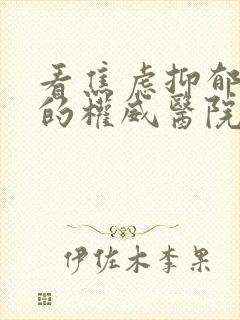 看焦虑抑郁
的權威醫院
伊佐木李果